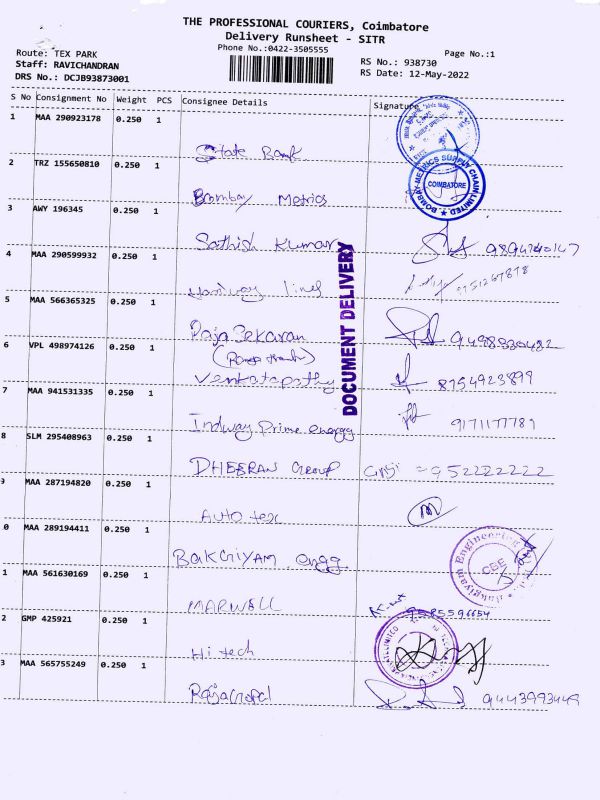 THE PROFESSIONAL COURIERS, Coimbatore
Delivery Runsheet - SITR
Phone No.:0422-3505555
Page No.:1
Route: TEX PARK
RS No.: 938730
Staff: RAVICHANDRAN
RS Date: 12-May-2022
DRS No.: DCJB93873001
S No Consignment No Weight PCS Consignee Details Signature
1 MAA 290923178 0.250 1
State Bank
2 TRZ 155650810 0.250 1
BOMBAY-METRICS SUPPLY CHAIN LIMITED
COIMBATORE
Bombay Metrics
3 AWY 196345 0.250 1
Sathish Kumar
4 MAA 290599932 0.250 1
lines 9751267878
5 MAA 566365325 0.250 1
DOCUMENT DELIVERY
Rajasekaran
6 VPL 498974126 0.250 1
Venkatapathy 8754923899
7 MAA 941531335 0.250 1
Indway Prime energy 9171177781
8 SLM 295408963 0.250 1
DHEERAN Group 952222222
9 MAA 287194820 0.250 1
Auto tex
0 MAA 289194411 0.250 1
Bakgiyam Engineering
CBE
BAKGIYAM engg
1 MAA 561630169 0.250 1
MARWELL
2 GMP 425921 0.250 1
Hi tech
3 MAA 565755249 0.250 1
Rajagopal 9443993449